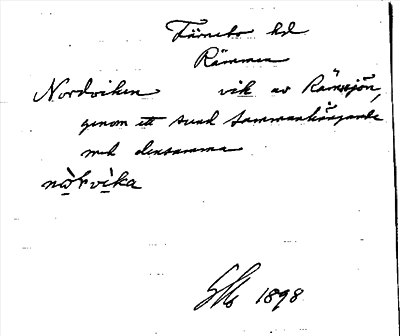 Färnebo hd
Rämmen
Nordviken vik av Rämsjön,
genom ett sund sammanhängande
med densamma
nòrvìka
1898